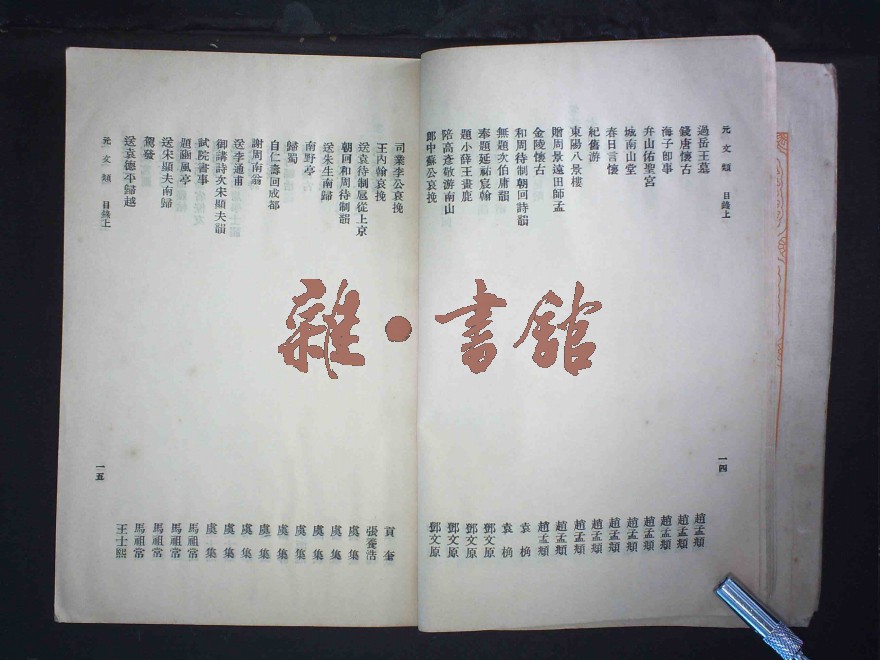 元文類 目錄上
過岳王墓 趙孟頫
錢唐懷古 趙孟頫
海子即事 趙孟頫
弁山佑聖宮 趙孟頫
城南山堂 趙孟頫
春日言懷 趙孟頫
紀舊游 趙孟頫
東陽八景樓 趙孟頫
贈周景遠田師孟 趙孟頫
金陵懷古 趙孟頫
和周待制朝回詩韻 袁桷
無題次伯庸韻 袁桷
奉題延祐宸翰 鄧文原
題小薛王畫鹿 鄧文原
陪高彥敬游南山 鄧文原
鄧中蘇公哀挽 鄧文原
一四
司業李公哀挽 貢奎
王內翰哀挽 張養浩
送袁待制扈從上京 虞集
朝回和周待制韻 虞集
送朱生南歸 虞集
南野亭 虞集
歸蜀 虞集
自仁壽回成都 虞集
謝周南翁 虞集
送李通甫 虞集
御講詩次宋顯夫韻 虞集
試院書事 馬祖常
題豳風亭 馬祖常
送宋顯夫南歸 馬祖常
駕發 馬祖常
送袁德平歸越 王士熙
元文類 目錄上
一五
雜·書館